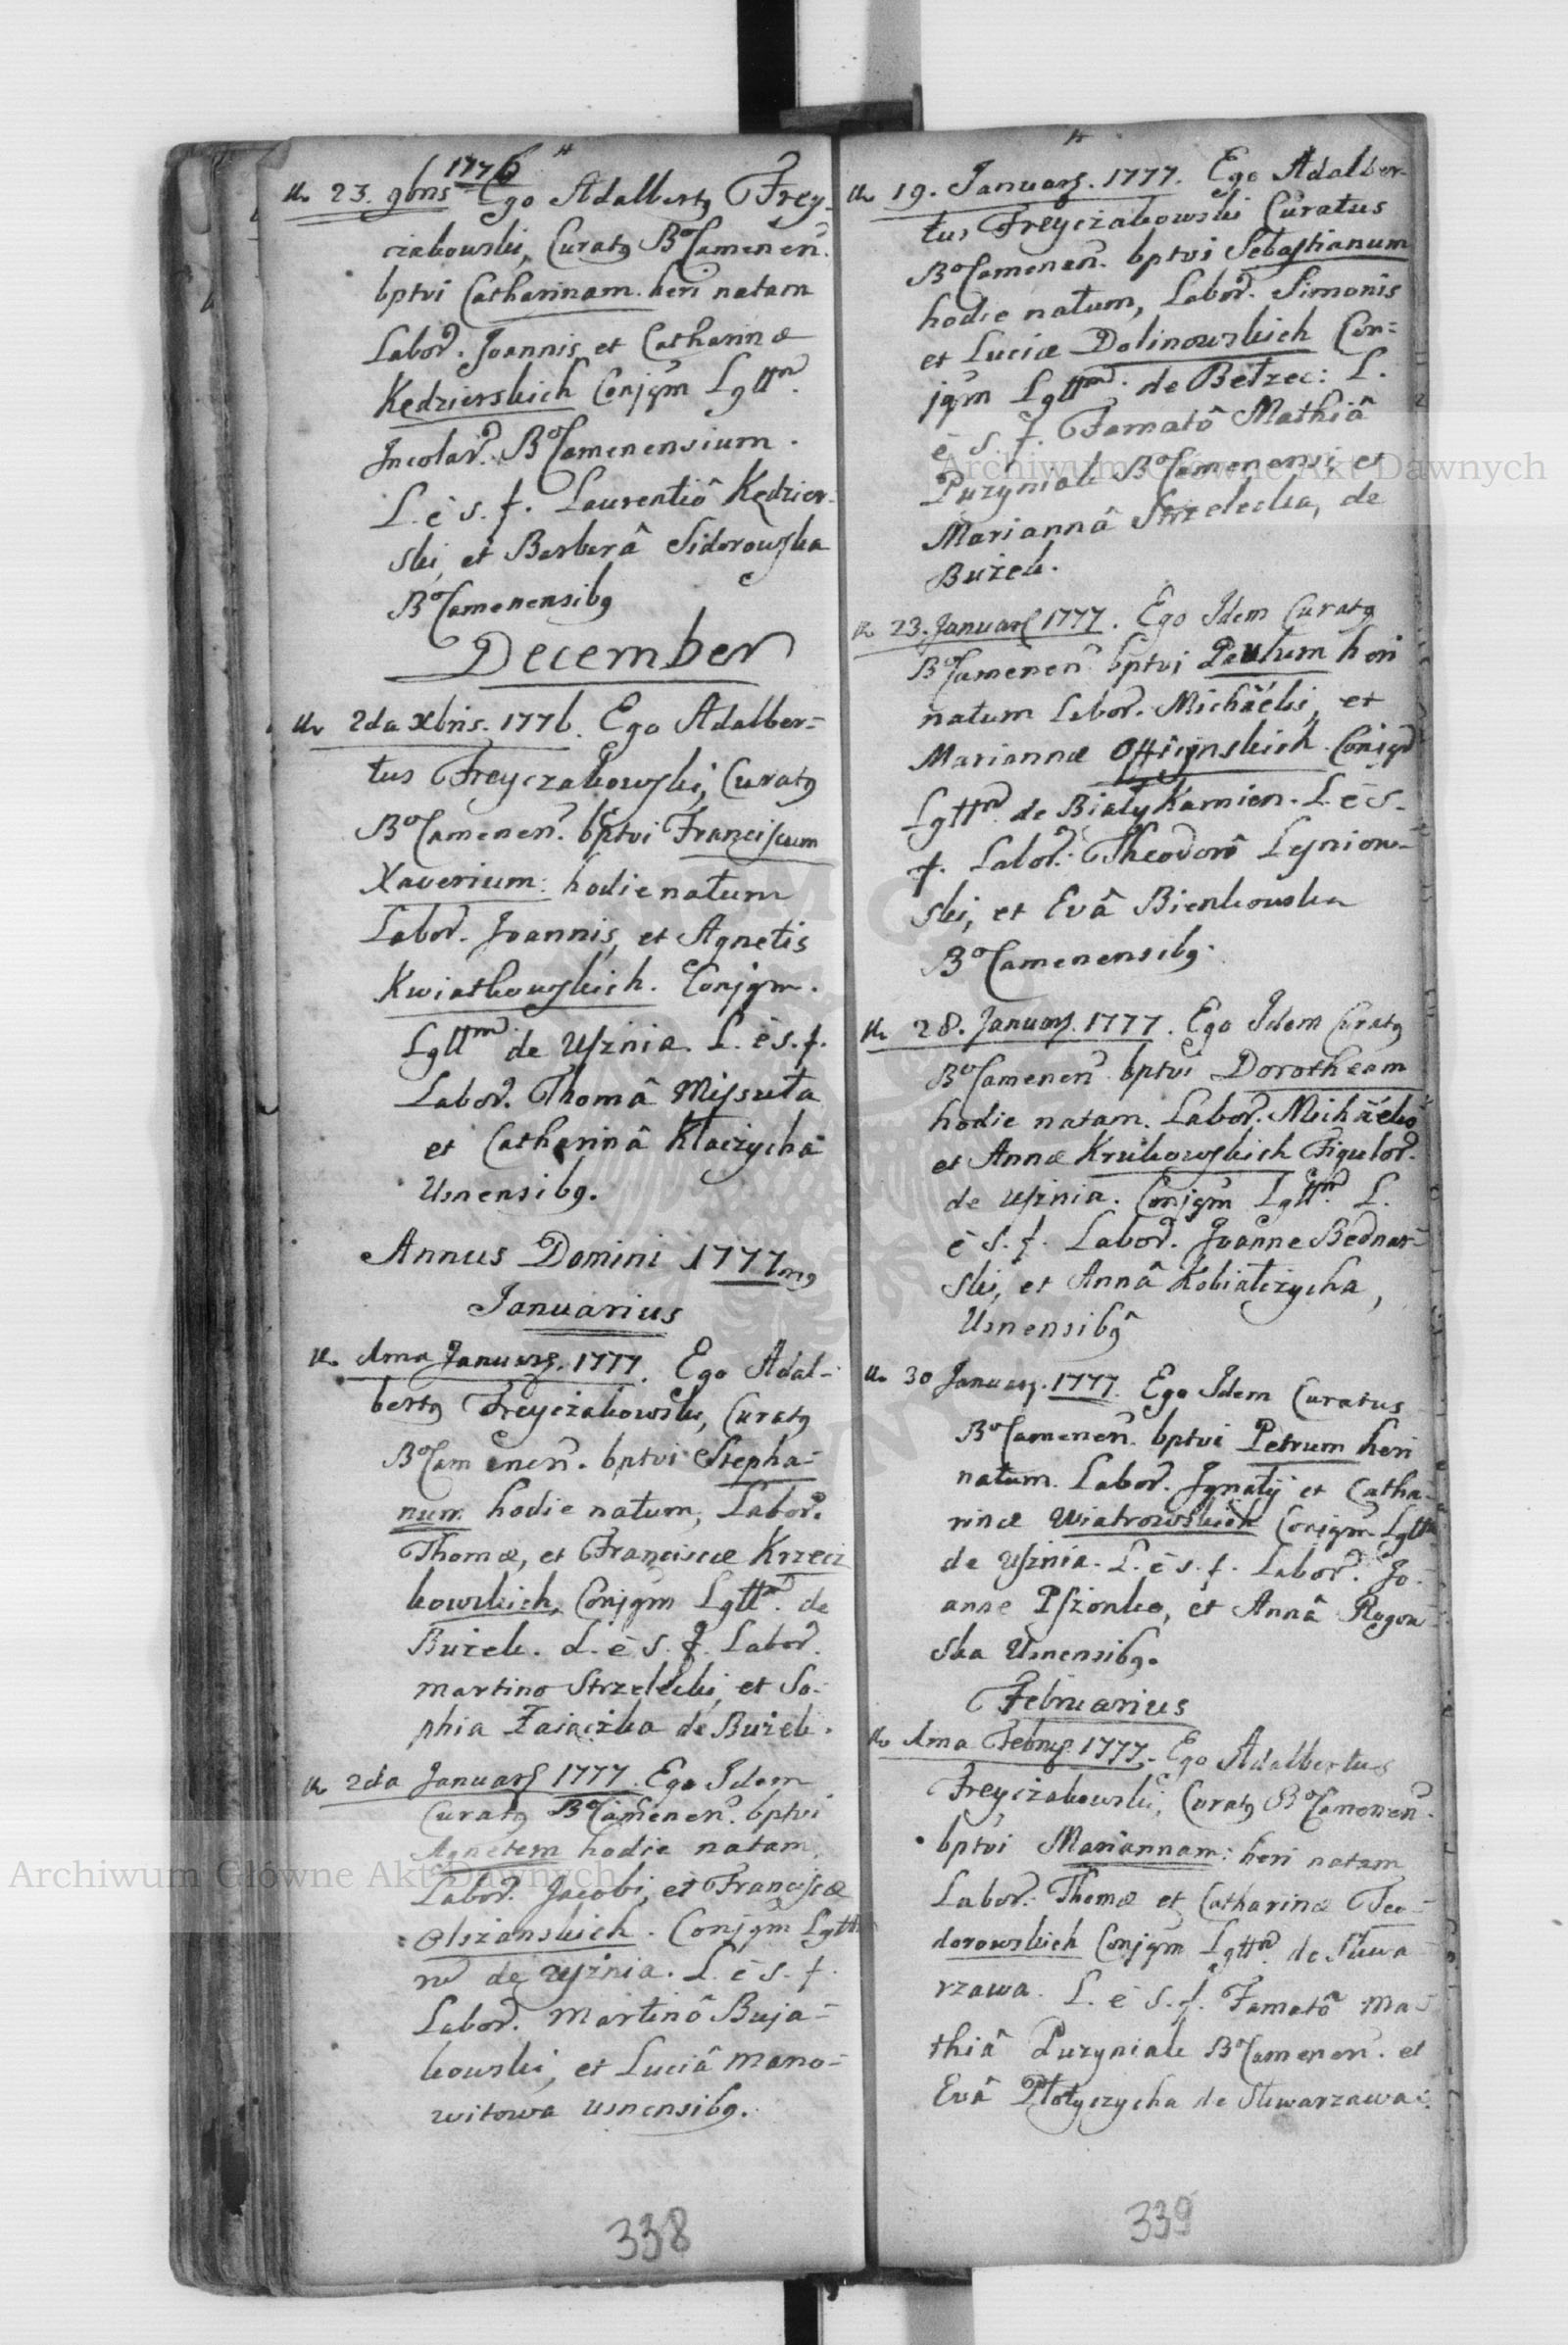 1776
23. 9bris Ego Adalbertq Frey-
czakowski, Curatq BoCamenen.
bptvi Catharinam heri natam
Labor. Joannis et Catharinæ
Kędzierskich Conjgm Lgttm.
Incolar. BoCamenensium.
L. è s. f. Laurentiô Kędzier-
ski, et Barbarâ Sidorowska
BoCamenensibq
December
2da Xbris. 1776. Ego Adalber=
tus Freyczakowski, Curatq
BoCamenen. bptvi Franciscum
Xaverium: hodie natum
Labor. Joannis, et Agnetis
Kwiatkowskich. Conjgm.
Lgttm de Usznia. L. è s. f.
Labor. Thomâ Missuta
et Catharinâ Kłaczycha
Usnensibq.
Annus Domini 1777mq
Januarius
1ma Januarj. 1777. Ego Adal-
bertq Freyczakowski, Curatq
BoCamenen. bptvi Stepha=
num hodie natum, Labor.
Thomæ, et Franciscæ Krzecz
kowskich, Conjgm Lgttm. de
Bużek. L. è s. f. Labor.
Martino Strzelecki, et So-
phia Zaiączka de Bużek.
2da Januarj 1777. Ego Idem
Curatq BoCamenen. bptvi
Agnetem hodie natam,
Labor. Jacobi, et Franciscæ
Olszanskich. Conjgm Lgtt
m de Usznia. L. è s. f.
Labor. Martinô Buja=
kowski, et Luciâ Mano=
witowa Usnensibq.
338
19. Januarj. 1777. Ego Adalber-
tus Freyczakowski Curatus
BoCamenen. bptvi Sebastianum
hodie natum, Labor. Simonis
et Luciæ Dolinowskich Con=
jgm Lgttm. de Bełzec: L.
è s. f. Famatô Mathiâ
Puzyniak BoCamenensi, et
Mariannâ Strzelecka, de
Bużek.
23. Januarj 1777. Ego Idem Curatq
BoCamenen bptvi Paulum heri
natum Labor. Michaëlis, et
Mariannæ Officynskich. Conjgm
Lgttm. de Biały Kamien. L. è s.
f. Labor. Theodorô Lesniow-
ski, et Evâ Bienkowska
BoCamenensibq.
28. Januarj. 1777. Ego Idem Curatq
BoCamenen bptvi Dorotheam
hodie natam. Labor. Michaëlis
et Annæ Krukowskich Figulor.
de Usznia. Conjgm Lgttm. L.
è s. f. Labor. Joanne Bednar-
ski, et Annâ Kobiałczycha,
Usnensibq
30 Januarj. 1777. Ego Idem Curatus
BoCamenen. bptvi Petrum heri
natum. Labor. Ignatij et Catha-
rinæ Wiatrowskich Conjgm Lgttm
de Usznia. L. è s. f. Labor. Jo-
anne Pszonka, et Annâ Rogow
ska Usnensibq.
Februarius
1ma Februarj. 1777. Ego Adalbertus
Freyczakowski, Curatq BoCamenen.
bptvi Mariannam: heri natam
Labor. Thomæ et Catharinæ Teo-
dorowskich Conjgm Lgttm. de Skwa
rzawa. L. è s. f. Famatô Ma=
thiâ Puzyniak BoCamenen. et
Evâ Płotyczycha de Skwarzawa.
339
Archiwum Główne Akt Dawnych
Archiwum Główne Akt Dawnych